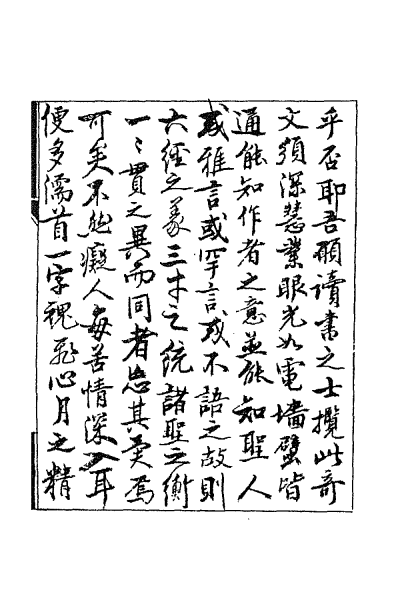 乎否耶吾願讀書之士攬此奇
文須深慧業眼光如電墻壁皆
通能知作者之意並能知聖人
或雅言或罕言或不語之故則
六經之義三才之統諸聖之衡
一〻貫之異而同者忘其異焉
可矣不然癡人每苦情深入耳
便多濡首一字魂飛心月之精